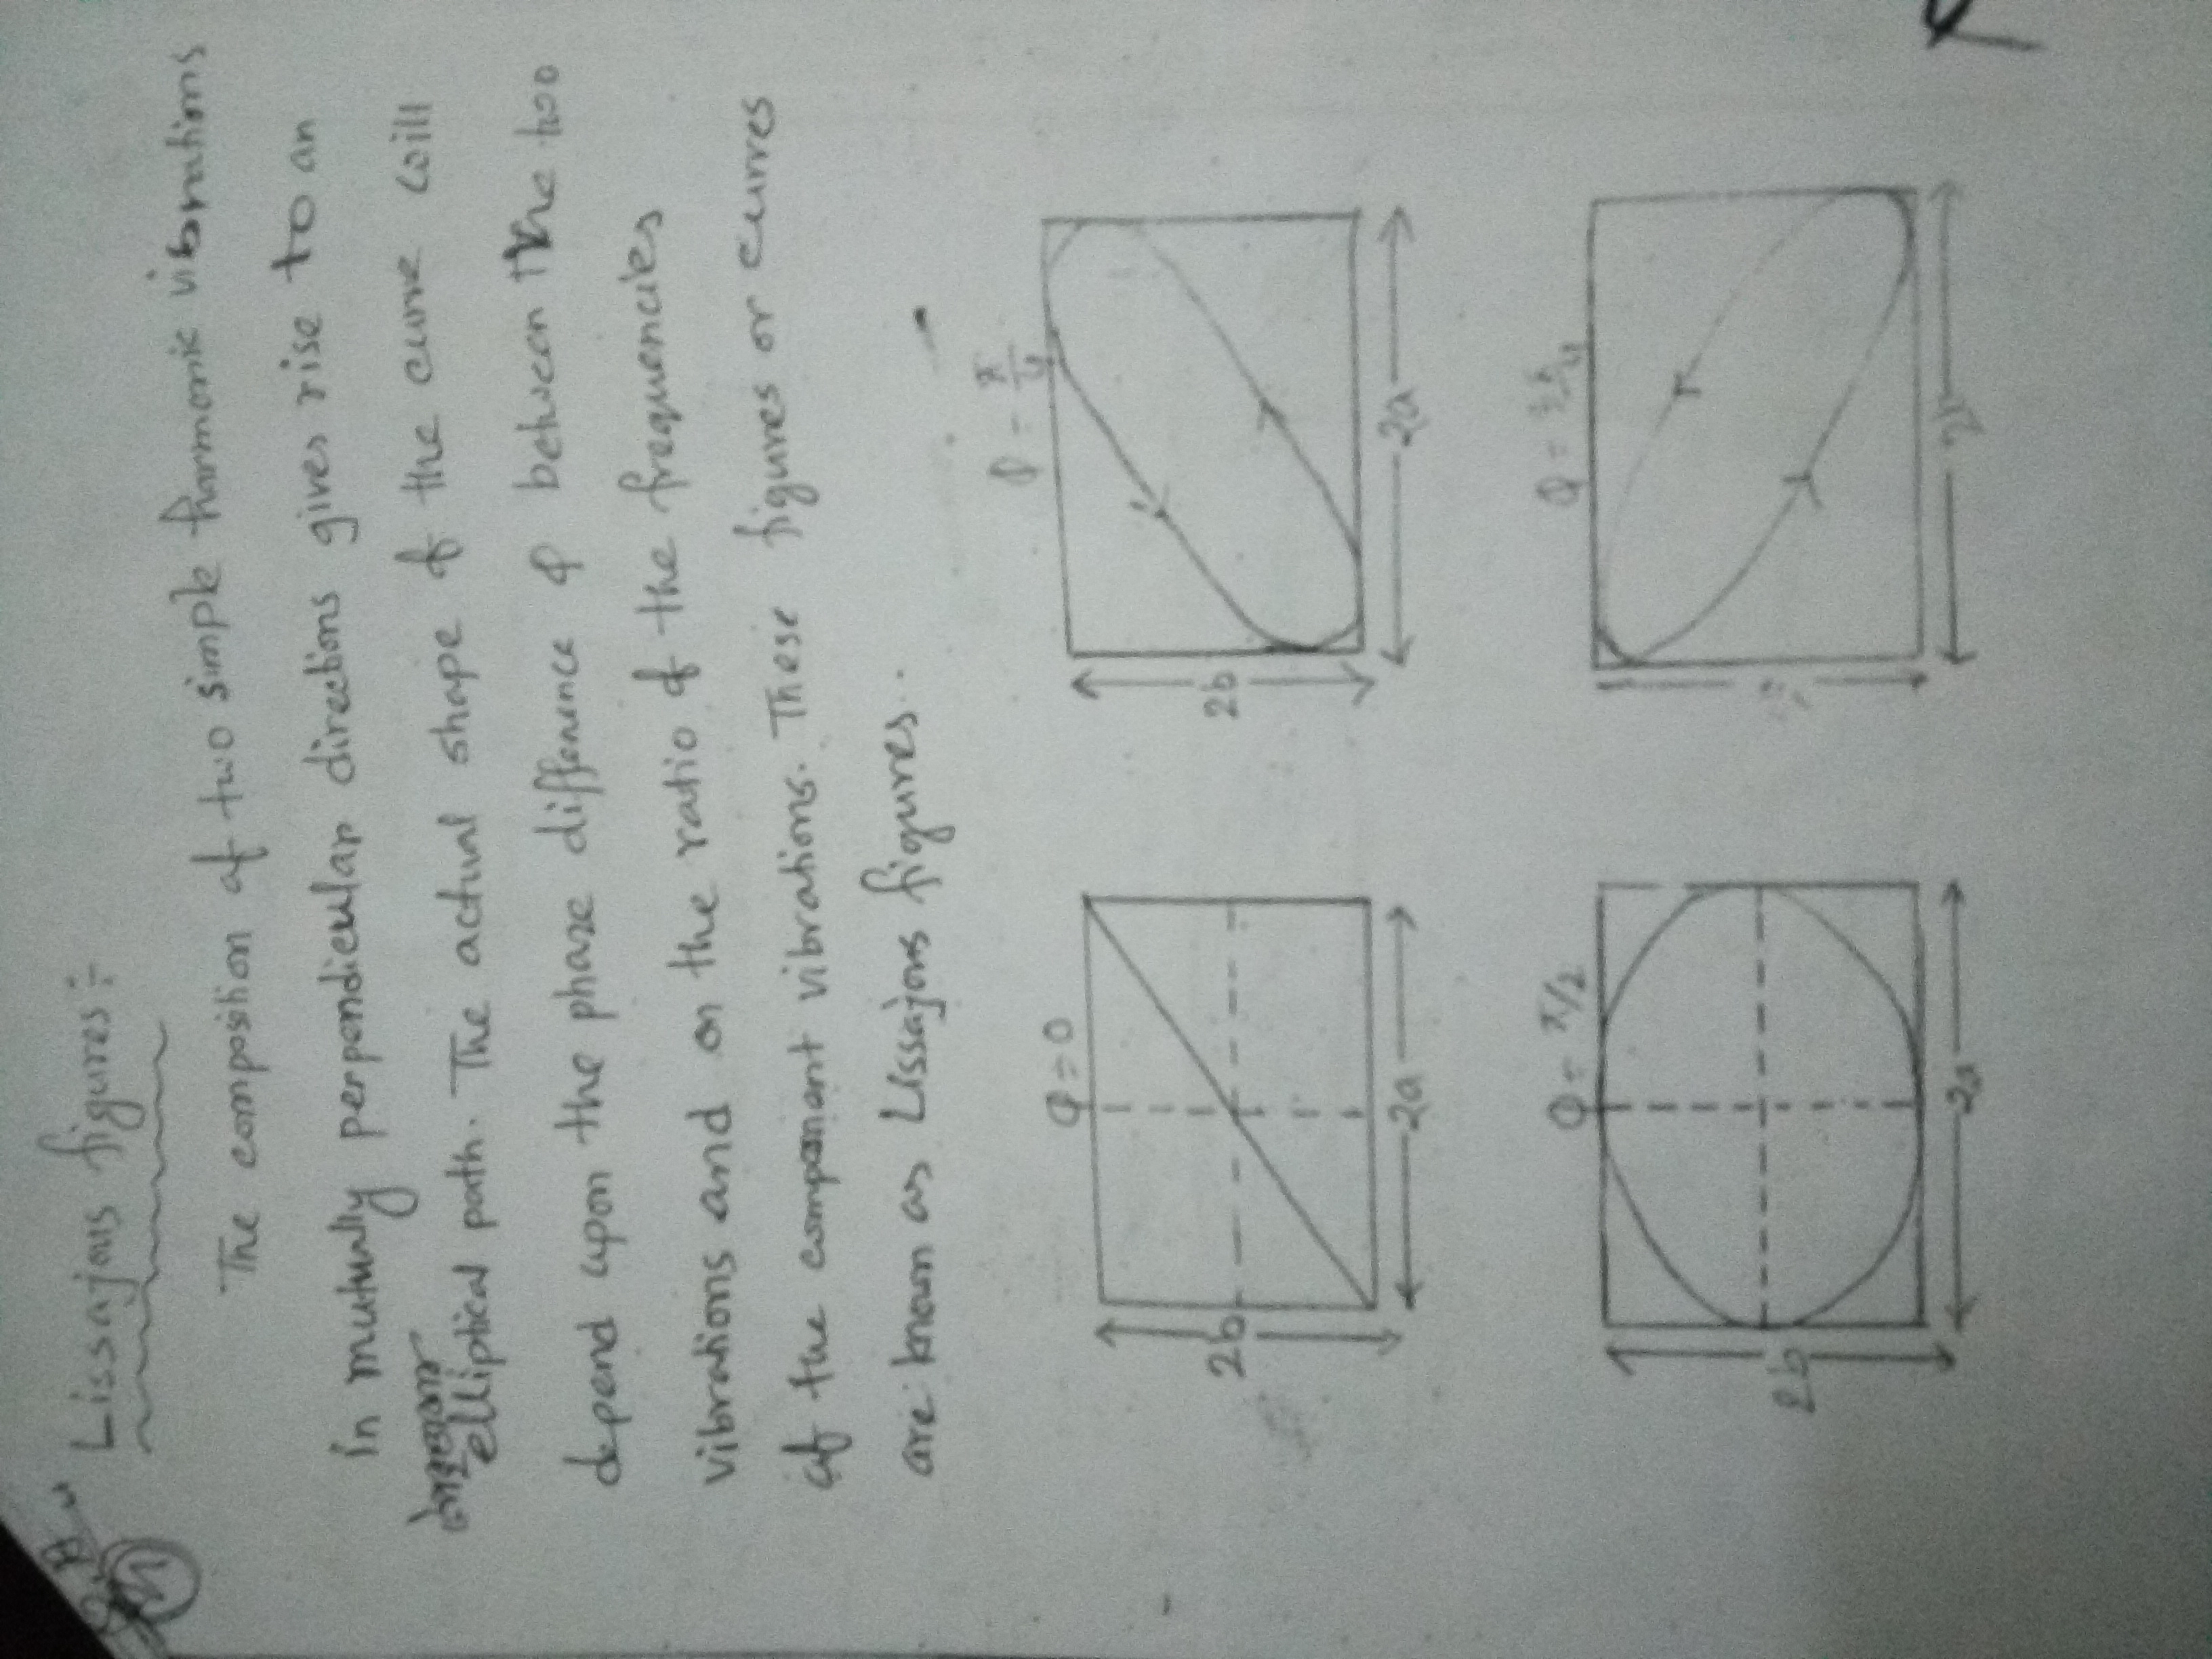 Lissajous figures :-
The composition of two simple harmonic vibrations
in mutually perpendicular directions gives rise to an
elliptical path. The actual shape of the curve will
depend upon the phase difference φ between the two
vibrations and on the ratio of the frequencies
of the component vibrations. These figures or curves
are known as Lissajous figures.
φ = 0
φ = π/4
2b
2a
2b
2a
φ = π/2
φ = 3π/4
2b
2a